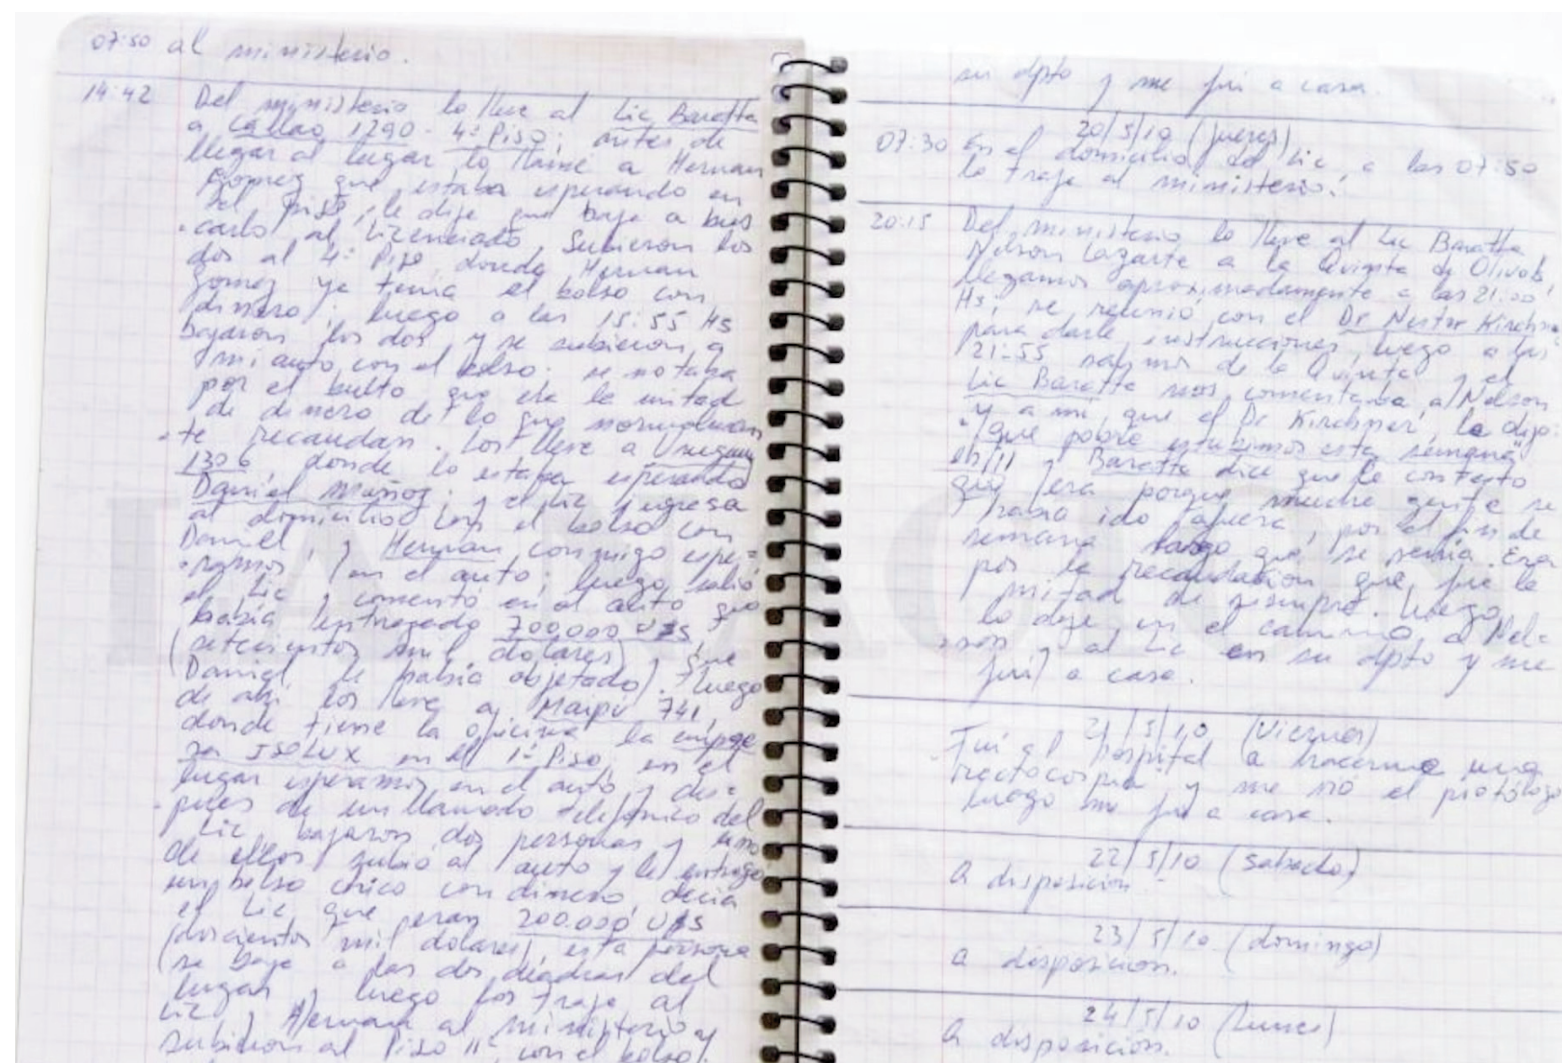 07:50 al ministerio.
14:42 Del ministerio lo lleve al Lic Baratta
a Callao 1290 - 4º Piso; antes de
llegar al lugar lo llame a Hernan
Gomez que estaba esperando en
el piso, le dije que baje a bus
carlo al Licenciado, Subieron los
dos al 4º Piso, donde Hernan
Gomez ya tenia el bolso con
dinero; luego a las 15:55 Hs
bajaron los dos y se subieron a
mi auto con el bolso. se notaba
por el bulto que era la mitad
de dinero de lo que normalmen
te recaudan. Los lleve a Uruguay
1306, donde lo estaba esperando
Daniel Muñoz; y el Lic ingresa
al domicilio con el bolso con
Daniel, y Hernan conmigo espe=
ramos en el auto; luego salió
el Lic y comentó en el auto que
habia entregado 700.000 U$S
(setecientos mil dolares) y que
Daniel le habia objetado). Luego
de ahi los lleve a Maipú 741,
donde tiene la oficina la empre
sa ISOLUX en el 1º Piso, en el
lugar esperamos en el auto y des=
pues de un llamado telefonico del
Lic, bajaron dos personas y uno
de ellos subió al auto y le entregó
un bolso chico con dinero, decia
el Lic que eran 200.000 U$S
(doscientos mil dolares) esta persona
se bajo a las dos cuadras del
lugar y luego los traje al
Lic y Hernan al ministerio y
subieron al Piso 11º con el bolso.
LA NACION
su dpto y me fui a casa.
20/5/10 (jueves)
07:30 En el domicilio del Lic, a las 07:50
lo traje al ministerio.
20:15 Del ministerio lo lleve al Lic Baratta
Nelson Lazarte a la Quinta de Olivos,
llegamos aproximadamente a las 21:00
Hs, se reunió con el Dr Nestor Kirchne
para darle instrucciones, luego a las
21:55 salimos de la Quinta y el
Lic Baratta nos comentaba, a Nelson
y a mi, que el Dr Kirchner, le dijo:
"que pobre estubimos esta semana
eh!!! y Baratta dice que le contesto
que era porque mucha gente se
habia ido afuera, por el fin de
semana largo que se venia. Era
por la recaudación que fue la
mitad de siempre. Luego
lo deje en el camino, a Nel=
son y al Lic en su dpto y me
fui a casa.
21/5/10 (Viernes)
Fui al Hospital a hacerme una
rectocospia y me vió el proctólogo
luego me fui a casa.
22/5/10 (sabado)
A disposicion.-
23/5/10 (domingo)
a disposicion.
24/5/10 (lunes)
A disposicion.